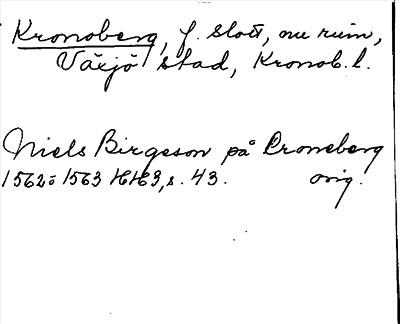 Kronoberg, f. slott, nu ruin,
Växjö stad, Kronob. l.
Niels Birgeson på Croneberg
1562 o 1563 HH3, s. 43. orig.